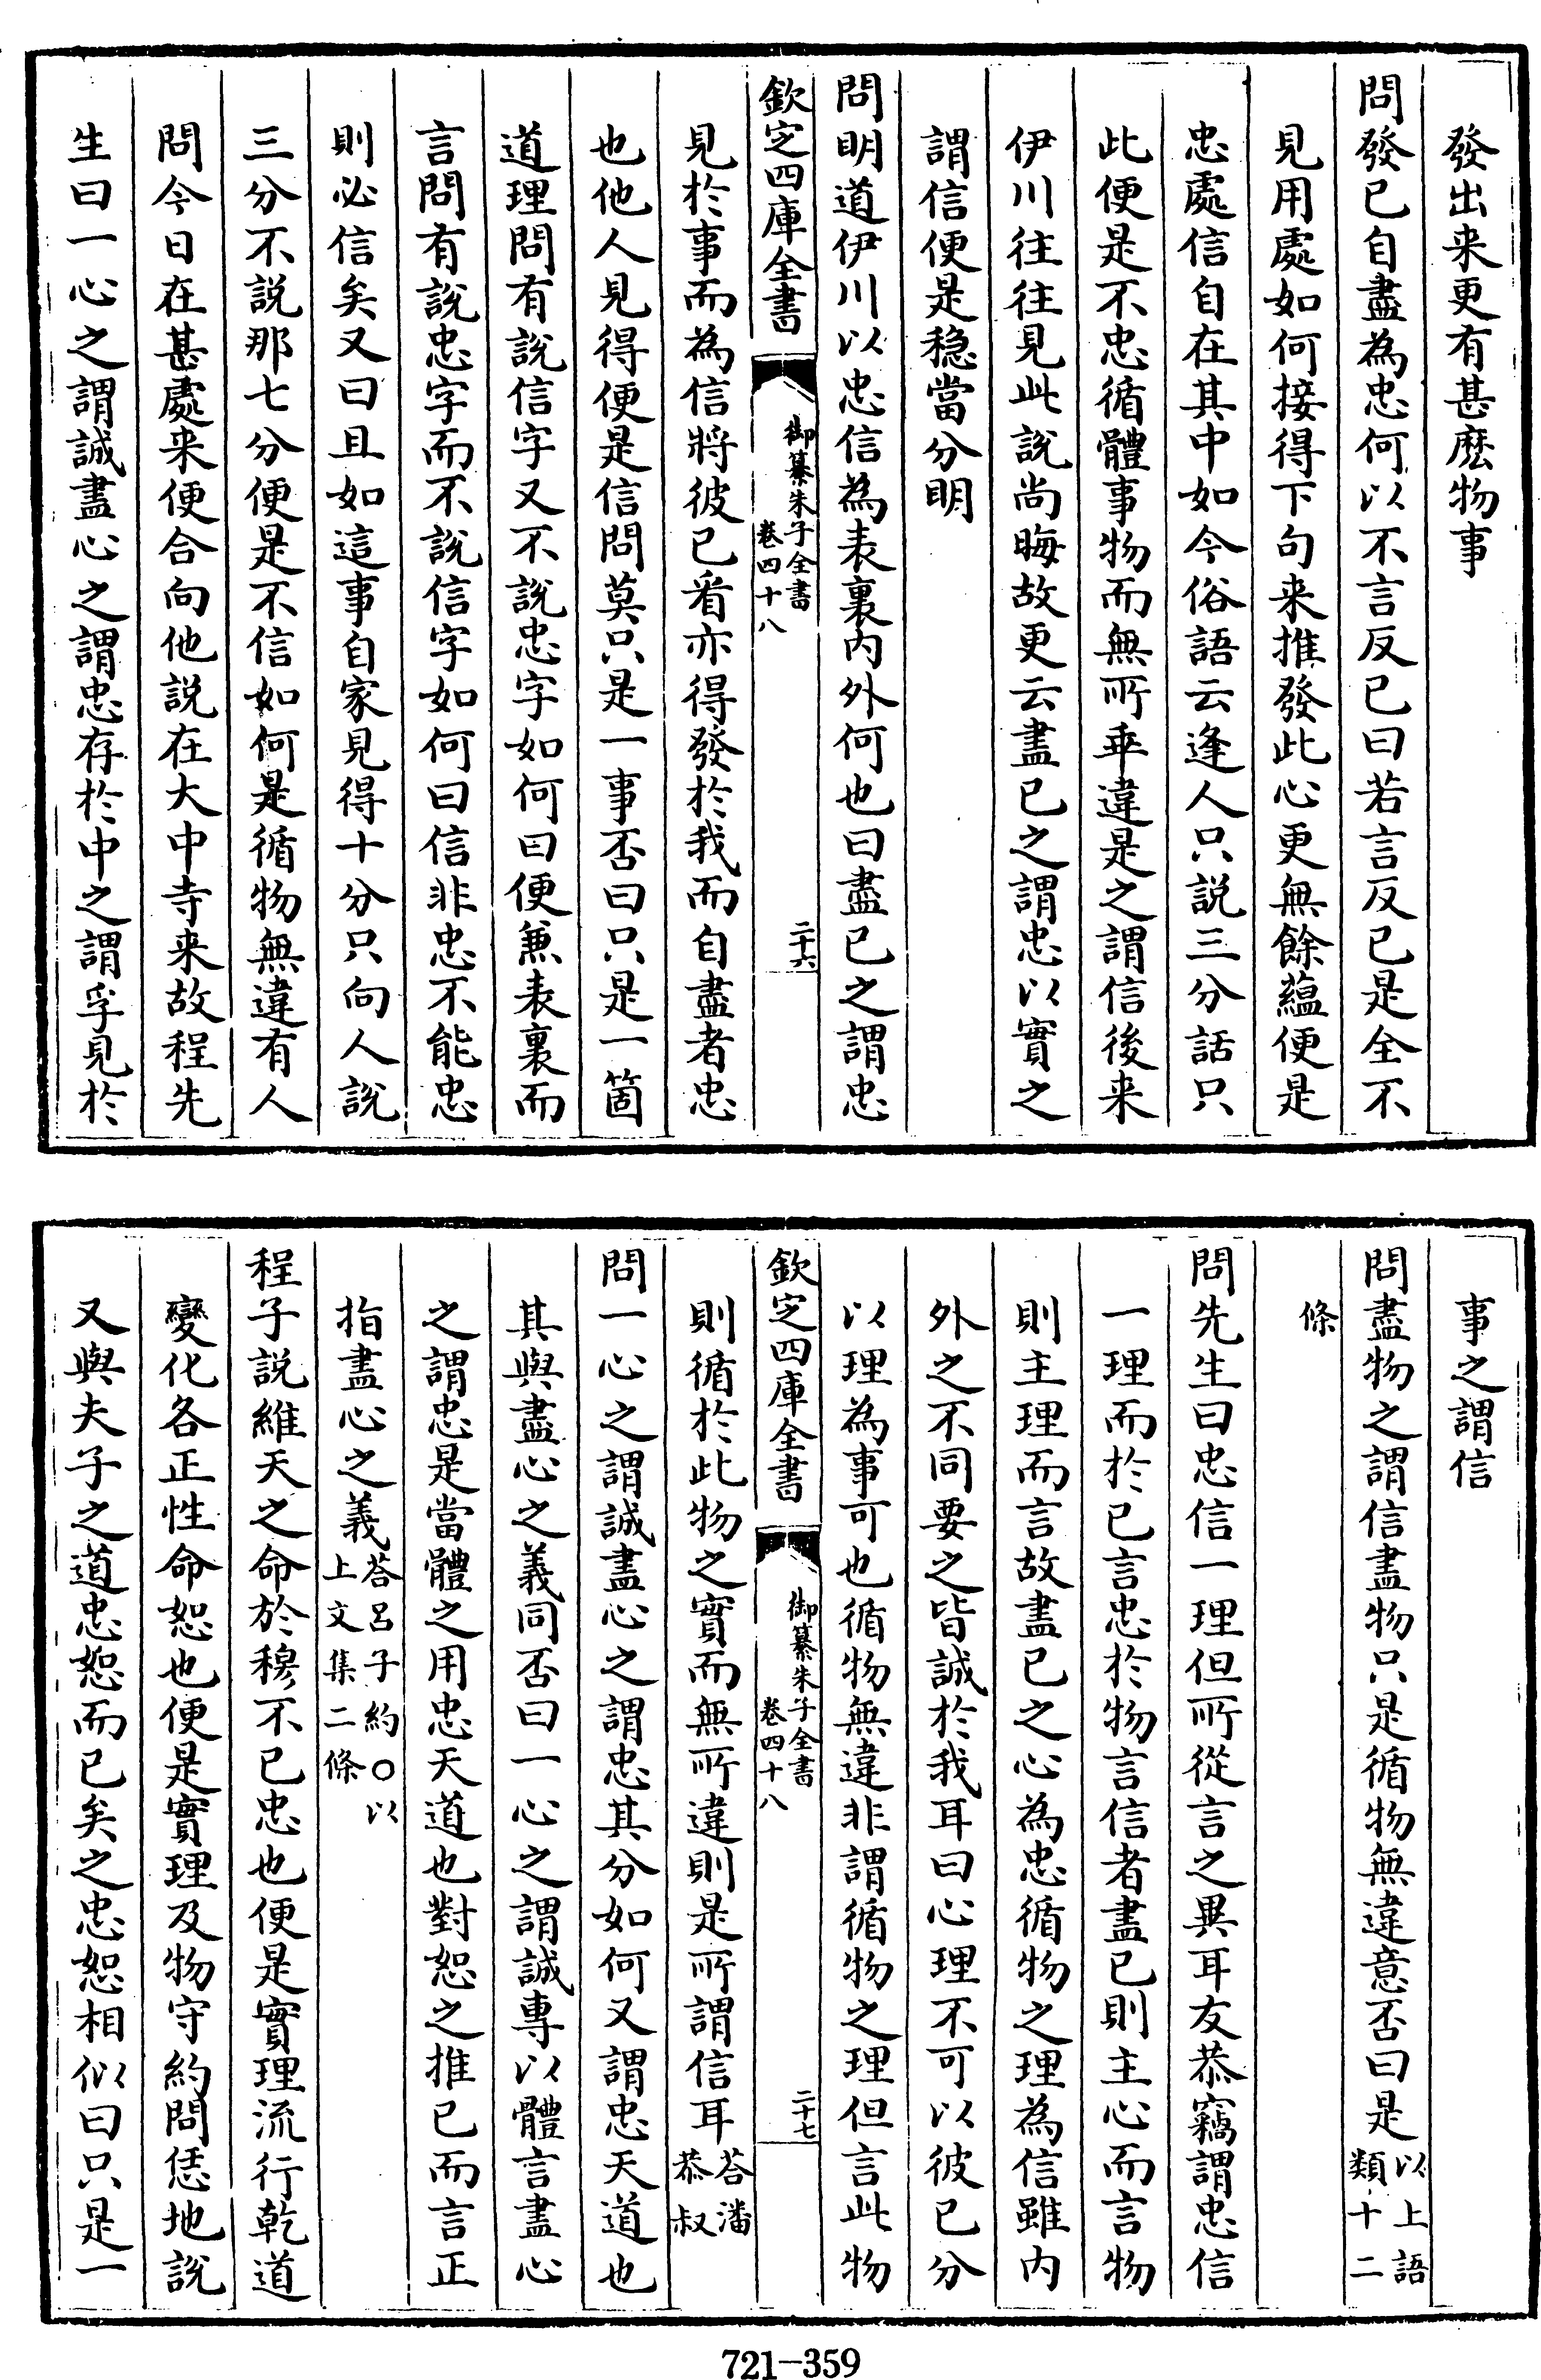 發出来更有甚麽物事
問發已自盡為忠何以不言反已曰若言反已是全不
見用處如何接得下句来推發此心更無餘蘊便是
忠處信自在其中如今俗語云逢人只説三分話只
此便是不忠循體事物而無所乖違是之謂信後来
伊川往往見此説尚晦故更云盡已之謂忠以實之
謂信便是穏當分明
問明道伊川以忠信為表裏内外何也曰盡已之謂忠
欽定四庫全書
御纂朱子全書
卷四十八
二十六
見於事而為信將彼已㸔亦得發於我而自盡者忠
也他人見得便是信問莫只是一事否曰只是一箇
道理問有説信字又不説忠字如何曰便兼表裏而
言問有説忠字而不説信字如何曰信非忠不能忠
則必信矣又曰且如這事自家見得十分只向人説
三分不説那七分便是不信如何是循物無違有人
問今日在甚處来便合向他説在大中寺来故程先
生曰一心之謂誠盡心之謂忠存於中之謂孚見於
事之謂信
問盡物之謂信盡物只是循物無違意否曰是以上語類十二
條
問先生曰忠信一理但所從言之異耳友恭竊謂忠信
一理而於已言忠於物言信者盡已則主心而言物
則主理而言故盡已之心為忠循物之理為信雖内
外之不同要之皆誠於我耳曰心理不可以彼已分
以理為事可也循物無違非謂循物之理但言此物
欽定四庫全書
御纂朱子全書
卷四十八
二十七
則循於此物之實而無所違則是所謂信耳答潘恭叔
問一心之謂誠盡心之謂忠其分如何又謂忠天道也
其與盡心之義同否曰一心之謂誠專以體言盡心
之謂忠是當體之用忠天道也對恕之推已而言正
指盡心之義答吕子約○以上文集二條
程子説維天之命於穆不已忠也便是實理流行乾道
變化各正性命恕也便是實理及物守約問恁地説
又與夫子之道忠恕而已矣之忠恕相似曰只是一
721-359